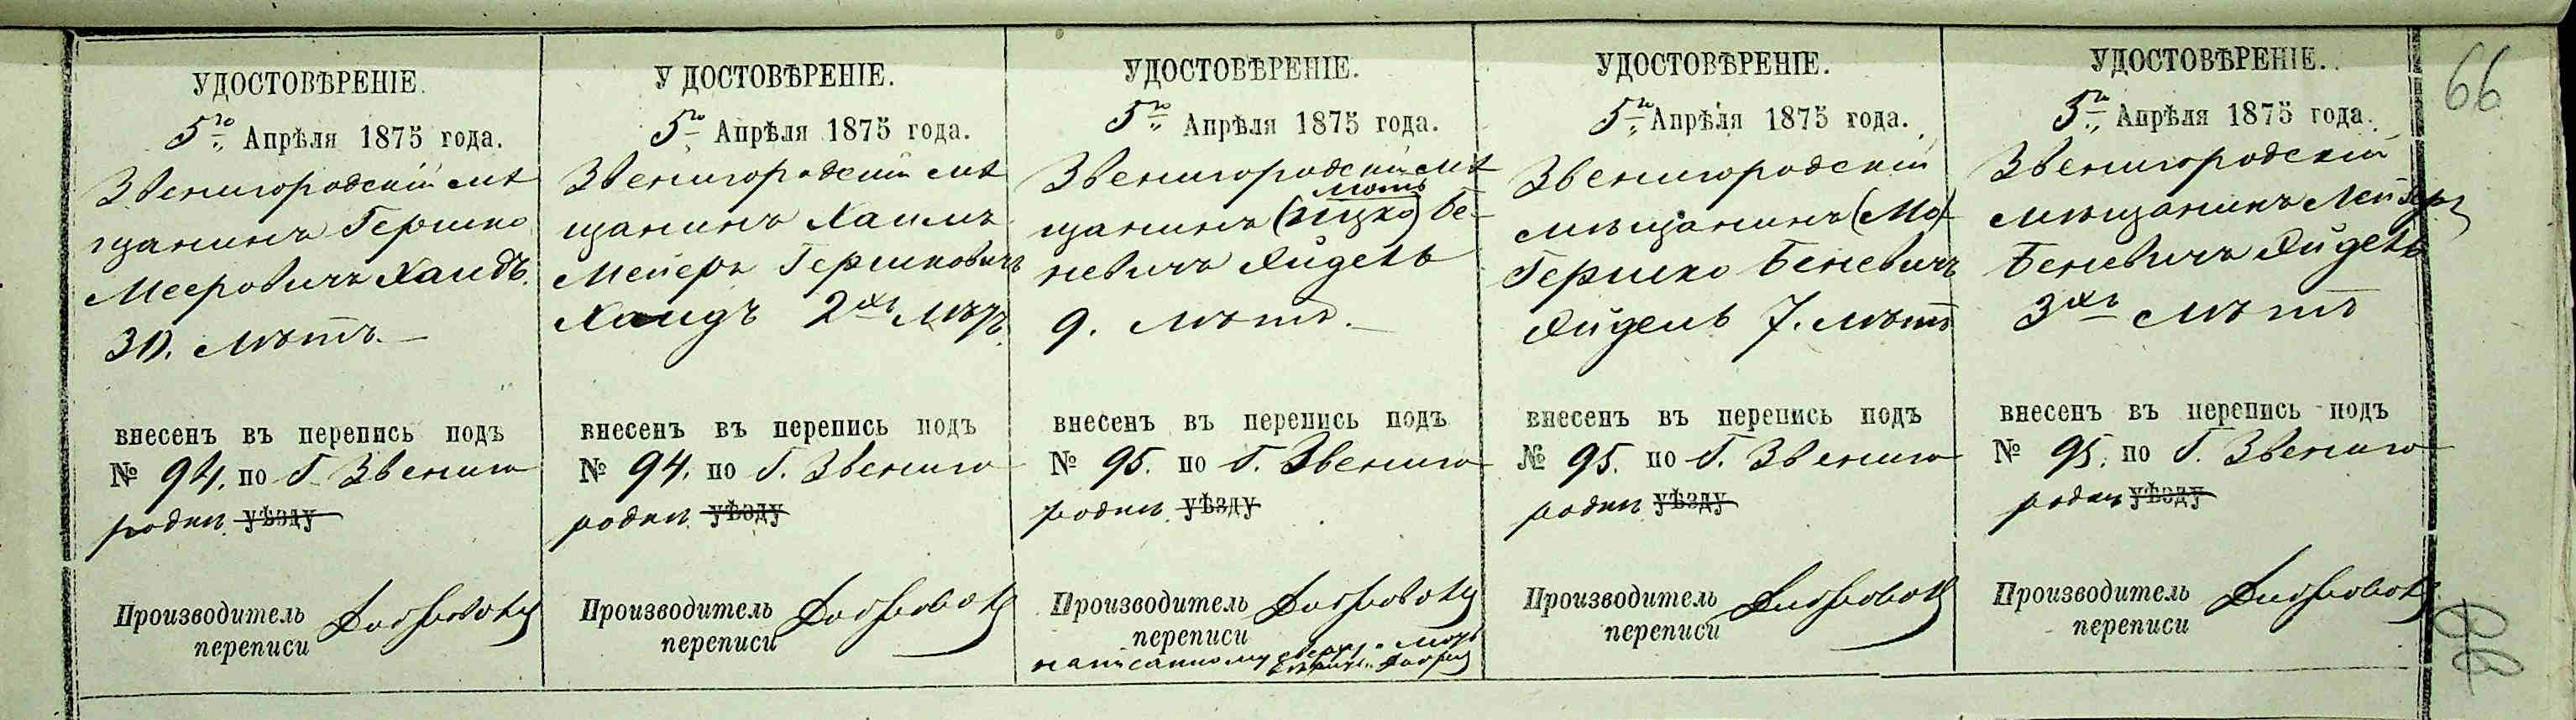 УДОСТОВѢРЕНІЕ.
5го Апрѣля 1875 года.
Звенигородскій мѣ
щанинъ Гершко
Мееровичъ Хаидъ.
30. лѣтъ.
внесенъ въ перепись подъ
№ 94. по г. Звениго
родки уѣзду
Производитель
переписи
УДОСТОВѢРЕНІЕ.
5го Апрѣля 1875 года.
Звенигородскій мѣ
щанинъ Хаимъ
Мейеръ Гершковичъ
Хаидъ 2хъ лѣтъ.
внесенъ въ перепись подъ
№ 94. по г. Звениго
родки уѣзду
Производитель
переписи
УДОСТОВѢРЕНІЕ.
5го Апрѣля 1875 года.
Звенигородскій мѣ
щанинъ (Ицко) Бе-
невичъ Яйдель
9. лѣтъ.
внесенъ въ перепись подъ
№ 95. по г. Звениго
родки уѣзду
Производитель
переписи
написанному сверху
УДОСТОВѢРЕНІЕ.
5го Апрѣля 1875 года.
Звенигородскій
мѣщанинъ (Мо)
Гершко Беневичъ
Яйдель 7. лѣтъ
внесенъ въ перепись подъ
№ 95. по г. Звениго
родки уѣзду
Производитель
переписи
УДОСТОВѢРЕНІЕ.
5го Апрѣля 1875 года.
Звенигородскій
мѣщанинъ Лейзеръ
Беневичъ Яйдель
3хъ лѣтъ
внесенъ въ перепись подъ
№ 95. по г. Звениго
родки уѣзду
Производитель
переписи
66